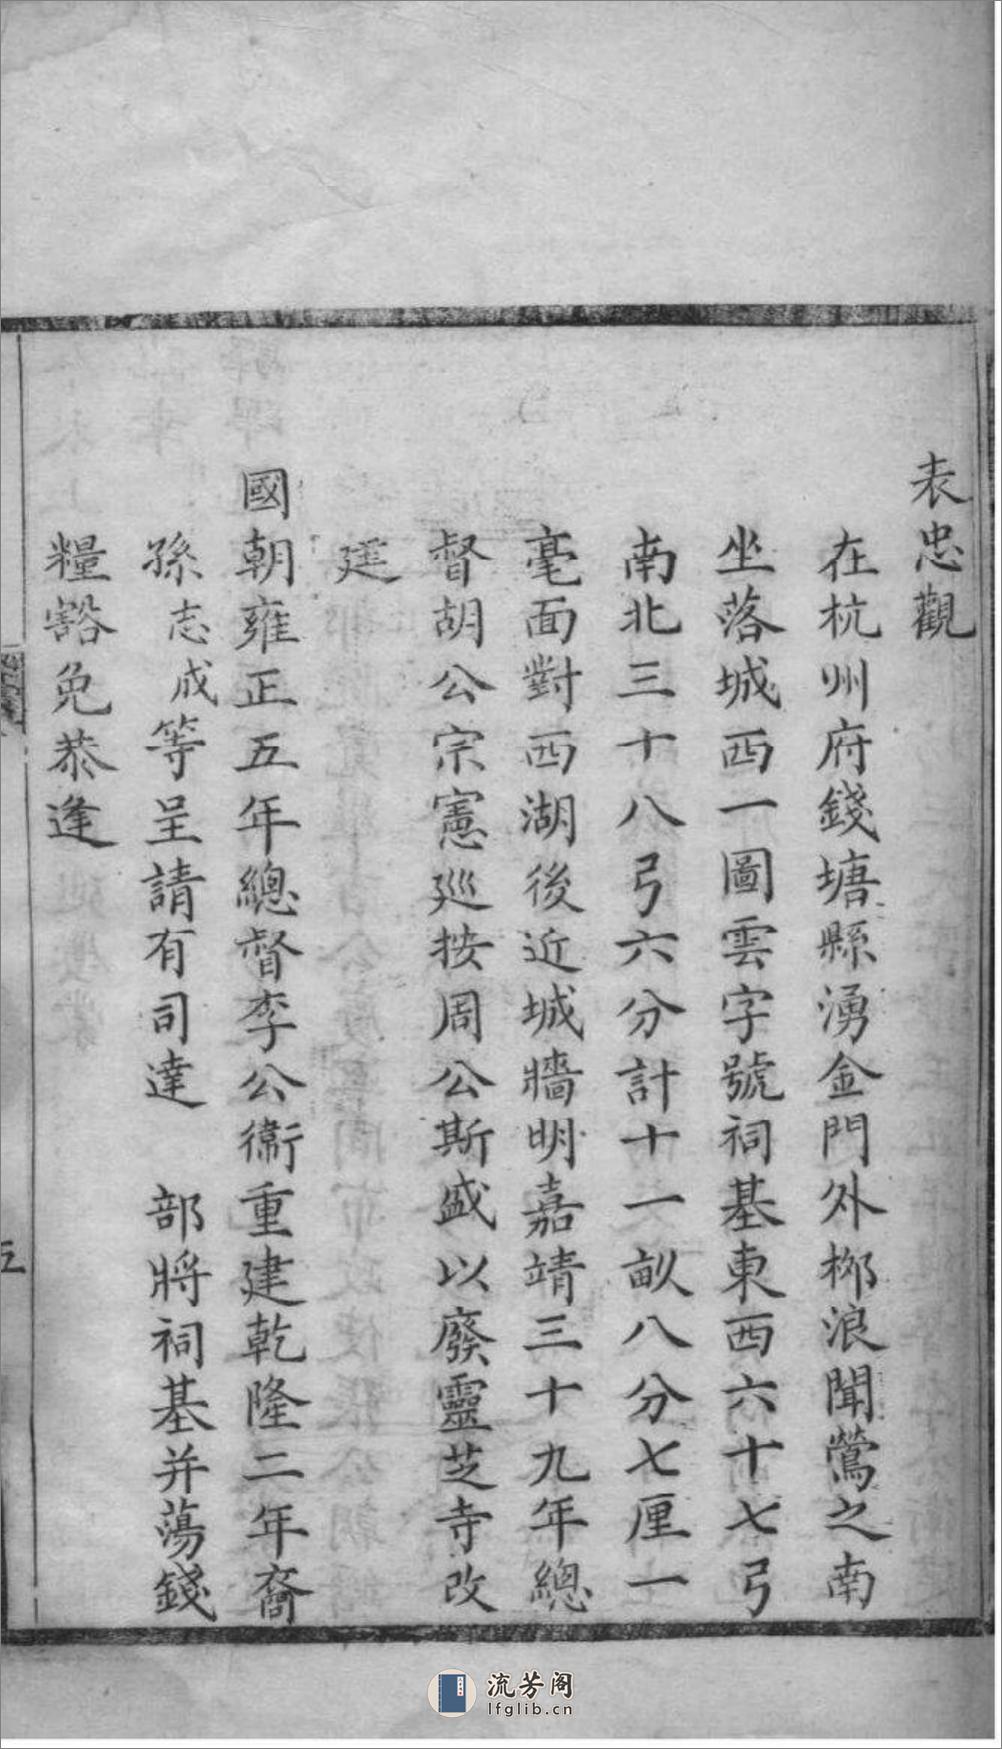 表忠觀
在杭州府錢塘縣湧金門外柳浪聞鶯之南
坐落城西一圖雲字號祠基東西六十七弓
南北三十八弓六分計十一畝八分七厘一
毫面對西湖後近城牆明嘉靖三十九年總
督胡公宗憲廵按周公斯盛以廢靈芝寺改
建
國朝雍正五年總督李公衞重建乾隆二年裔
孫志成等呈請有司達 部將祠基并蕩錢
糧豁免恭逢
五
流芳阁
lfglib.cn